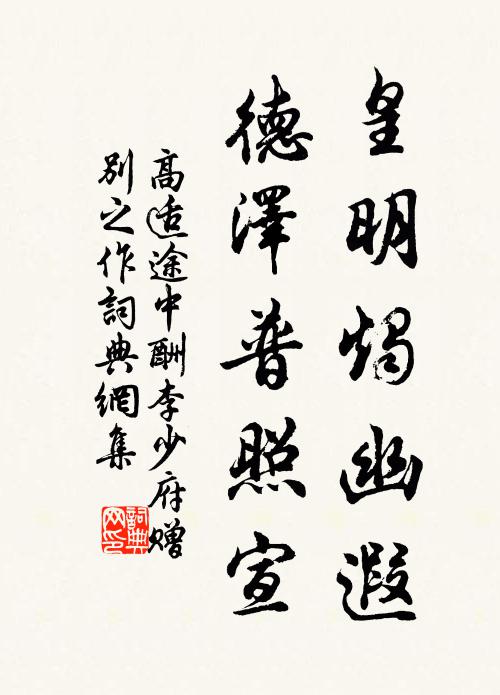 皇明燭幽遐
德澤普照宣
高适途中酬李少府贈
別之作詞典網集
詞典
网印